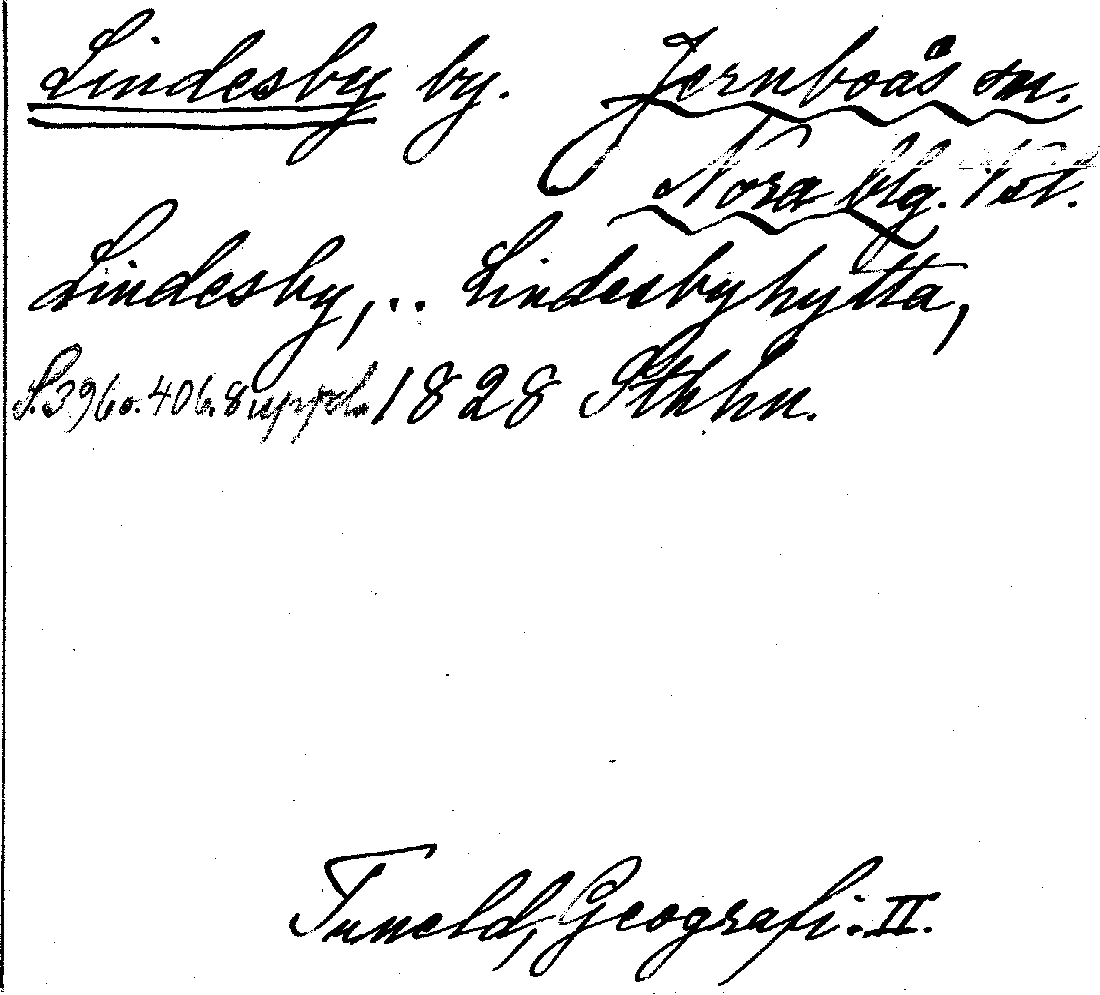 Lindesby by. Jernboås sn.
Nora blg. Vstl.
Lindesby, .. Lindesbyhytta,
S. 396 o. 406. 8 uppl. 1828 Sthhm.
Tuneld, Geografi. II.